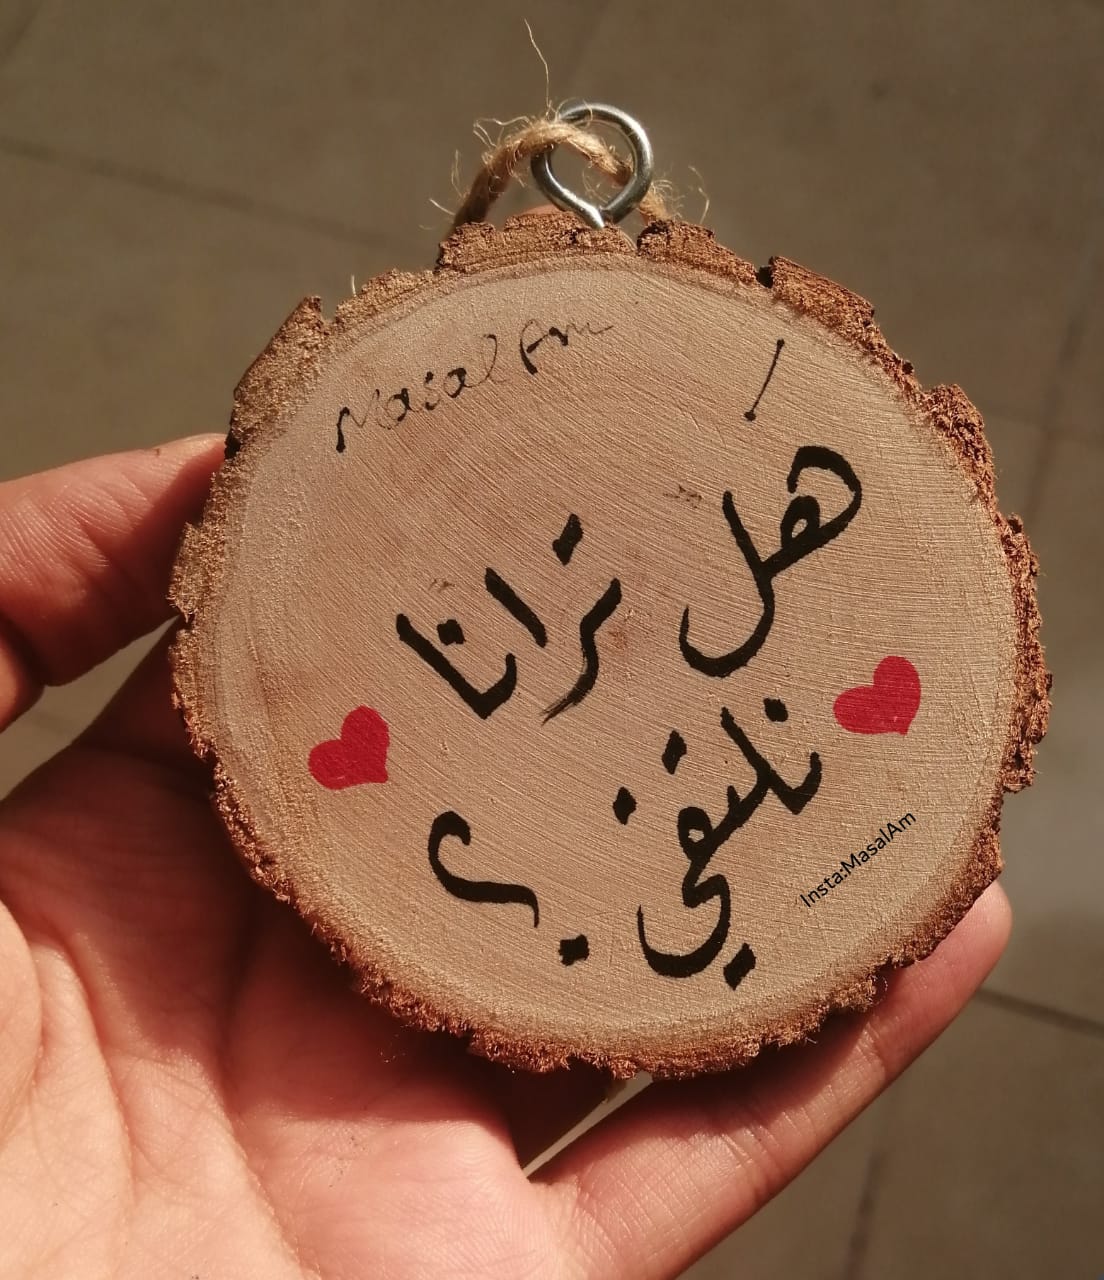 Masal Am
هل ترانا
نلتقي ؟
Insta:MasalAm